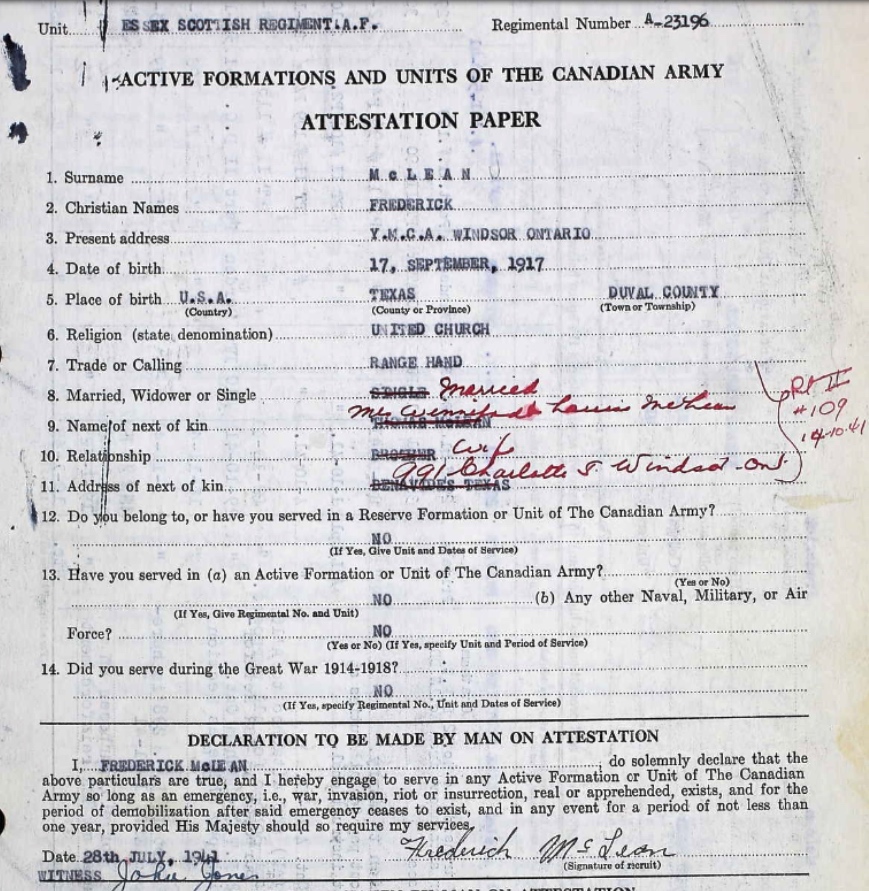 Unit ESSEX SCOTTISH REGIMENT.A.F. Regimental Number A-23196
ACTIVE FORMATIONS AND UNITS OF THE CANADIAN ARMY
ATTESTATION PAPER
1. Surname McLEAN
2. Christian Names FREDERICK
3. Present address Y.M.C.A. WINDSOR ONTARIO
4. Date of birth 17, SEPTEMBER, 1917
5. Place of birth U.S.A. TEXAS DUVAL COUNTY
(Country) (County or Province) (Town or Township)
6. Religion (state denomination) UNITED CHURCH
7. Trade or Calling RANGE HAND
8. Married, Widower or Single SINGLE Married
Mrs Louise McLean
9. Name of next of kin THOMAS McLEAN
Pt II
#109
14-10-41
10. Relationship BROTHER Wife
991 Charlotte St Windsor Ont.
11. Address of next of kin BENAVADES TEXAS
12. Do you belong to, or have you served in a Reserve Formation or Unit of The Canadian Army?
NO
(If Yes, Give Unit and Dates of Service)
13. Have you served in (a) an Active Formation or Unit of The Canadian Army?
(Yes or No)
NO (b) Any other Naval, Military, or Air
(If Yes, Give Regimental No. and Unit)
Force? NO
(Yes or No) (If Yes, specify Unit and Period of Service)
14. Did you serve during the Great War 1914-1918?
NO
(If Yes, specify Regimental No., Unit and Dates of Service)
DECLARATION TO BE MADE BY MAN ON ATTESTATION
I, FREDERICK McLEAN, do solemnly declare that the
above particulars are true, and I hereby engage to serve in any Active Formation or Unit of The Canadian
Army so long as an emergency, i.e., war, invasion, riot or insurrection, real or apprehended, exists, and for the
period of demobilization after said emergency ceases to exist, and in any event for a period of not less than
one year, provided His Majesty should so require my services.
Frederick McLean
Date 28th JULY, 1941 (Signature of recruit)
WITNESS Jones